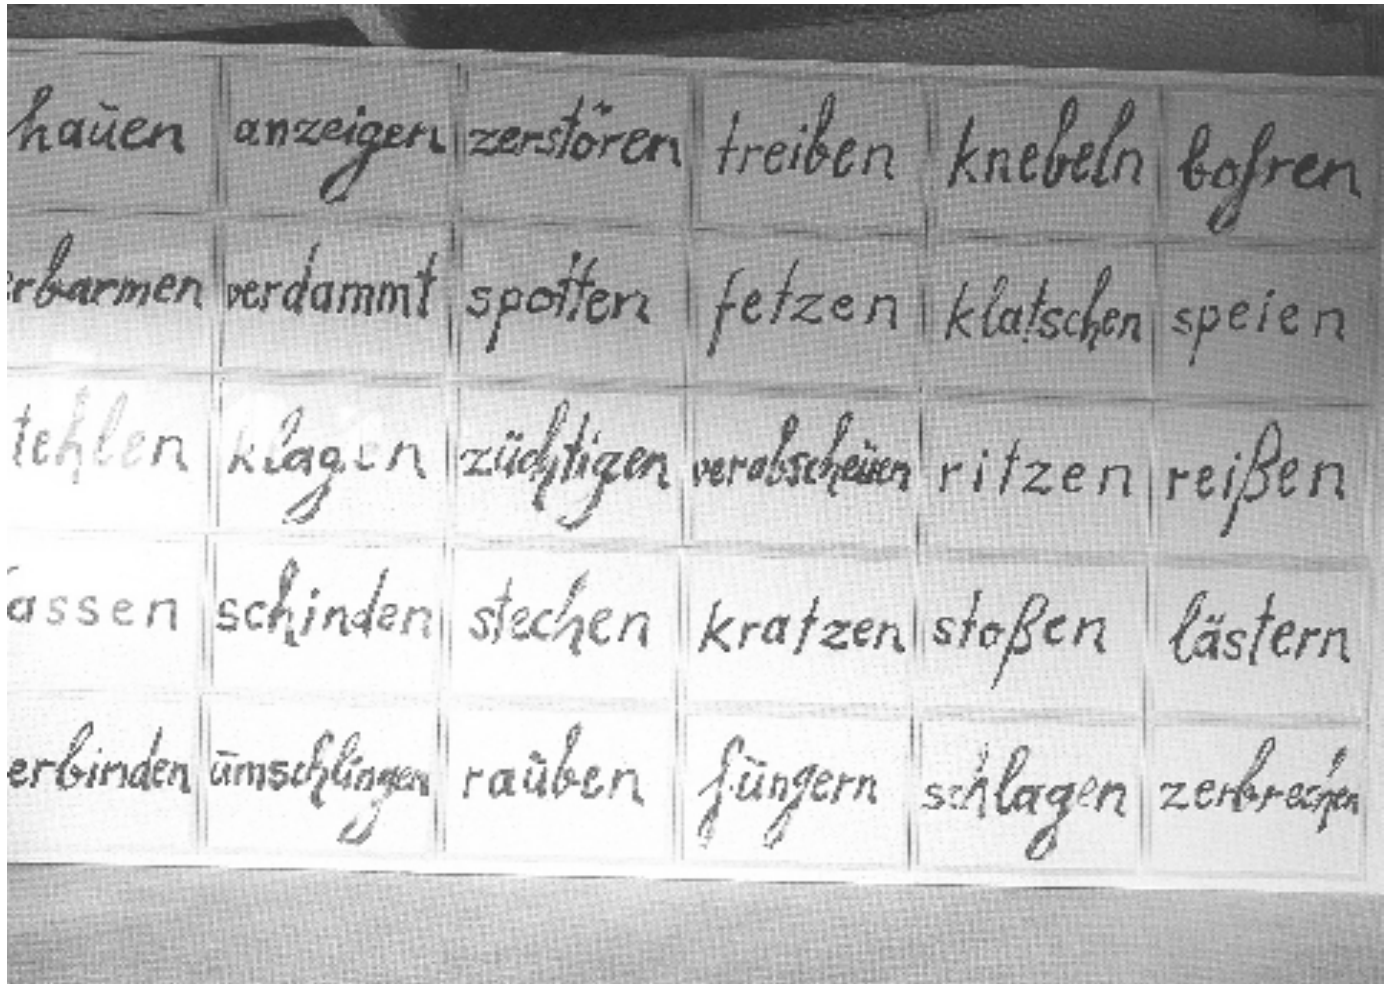 hauen anzeigen zerstören treiben knebeln bohren
erbarmen verdammt spotten fetzen klatschen speien
tehlen klagen züchtigen verabscheuen ritzen reißen
assen schinden stechen kratzen stoßen lästern
erbinden umschlingen rauben hungern schlagen zerbrechen